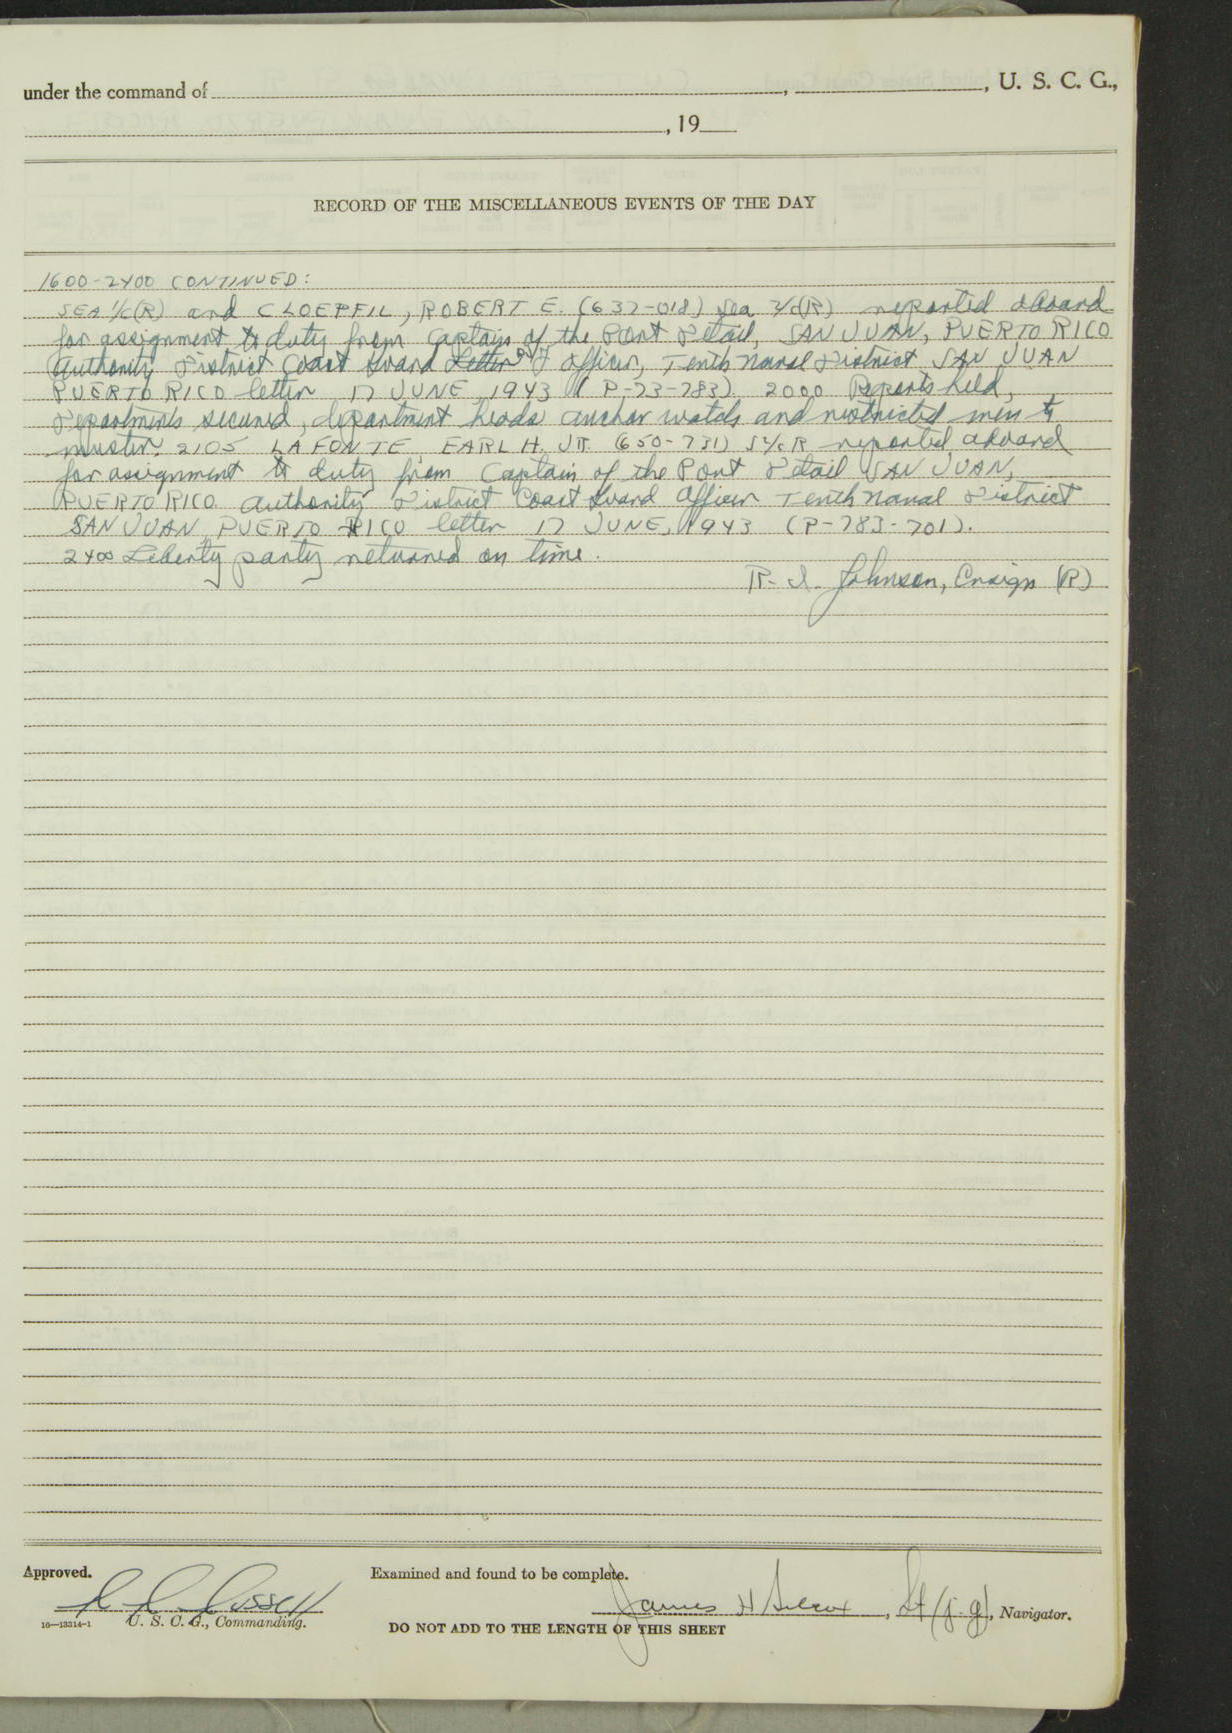 under the command of , , U. S. C. G.,
, 19
RECORD OF THE MISCELLANEOUS EVENTS OF THE DAY
1600-2400 CONTINUED:
SEA 1/c(R) and CLOEPFIL, ROBERT E. (637-018) Sea 2/c(R) reported aboard
for assignment to duty from Captain of the Port Detail, SAN JUAN, PUERTO RICO
Authority District Coast Guard Letter Officer, Tenth Naval District SAN JUAN
PUERTO RICO letter 17 JUNE, 1943 (P-73-783). 2000 Reports held,
Departments secured, department heads anchor watch and restricted men to
muster. 2105 LAFONTE, EARL H. JR. (650-731) S/c R reported aboard
for assignment to duty from Captain of the Port Detail SAN JUAN,
PUERTO RICO. Authority District Coast Guard Officer Tenth Naval District
SAN JUAN, PUERTO RICO letter 17 JUNE, 1943 (P-783-701).
2400 Liberty party returned on time.
R. I. Johnson, Ensign (R)
Approved.
Examined and found to be complete.
James H , Lt (j.g), Navigator.
16—13314-1 U. S. C. G., Commanding.
DO NOT ADD TO THE LENGTH OF THIS SHEET